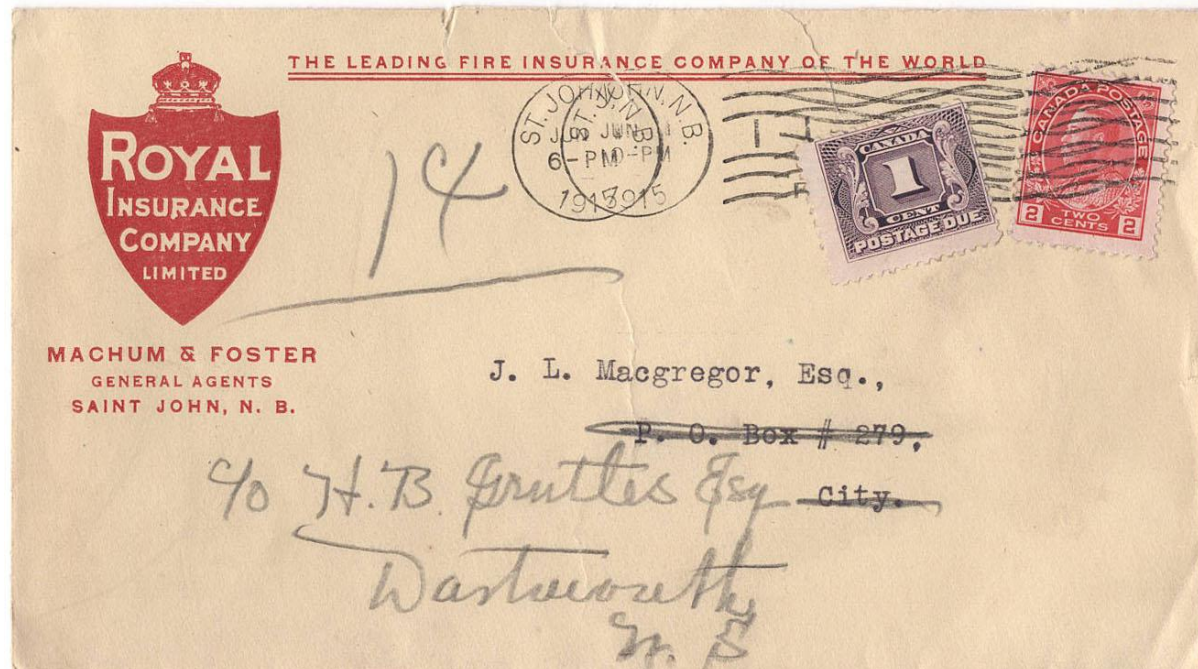 THE LEADING FIRE INSURANCE COMPANY OF THE WORLD
ROYAL
INSURANCE
COMPANY
LIMITED
MACHUM & FOSTER
GENERAL AGENTS
SAINT JOHN, N. B.
ST. JOHN, N.B.
6-PM
1915
CANADA
1
CENT
POSTAGE DUE
CANADA POSTAGE
2 TWO CENTS 2
J. L. Macgregor, Esq.,
P. O. Box # 279,
City.
c/o H. B. Esq
N. S